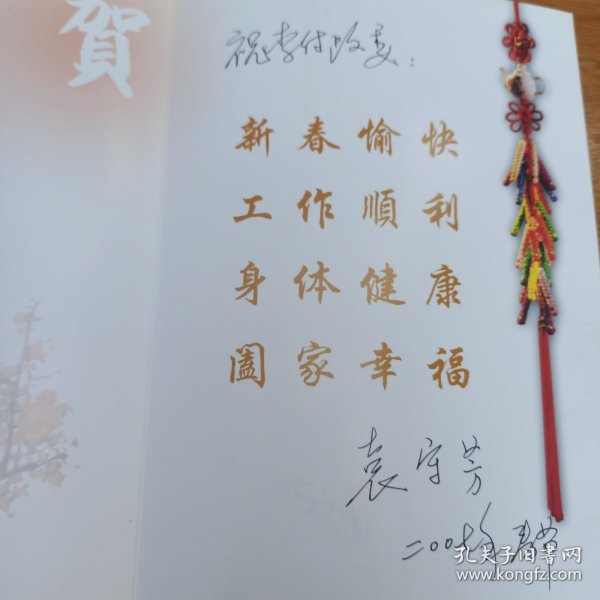 賀
祝李付政委：
新春愉快
工作順利
身体健康
闔家幸福
袁守芳
二00
孔夫子旧书网
www.kongfz.com